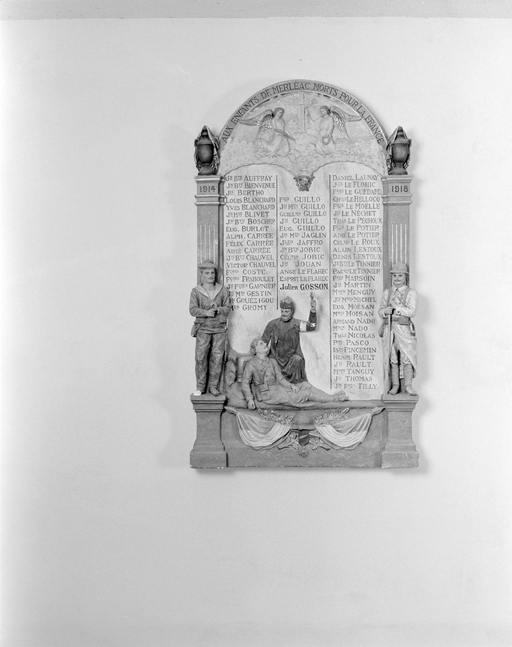 AUX ENFANTS DE MERLEAC MORTS POUR LA FRANCE
1914
1918
AUFFRAY
BIENVENUE
BERTHO
LOUIS BLANCHARD
YVES BLANCHARD
BLIVET
BOSCHER
EUG. BURLOT
ALPH. CARRÉE
FÉLIX CARRÉE
AIMÉ CARRÉE
CHAUVEL
VICTOR CHAUVEL
COSTE
FRABOULET
GARNIER
GESTIN
GOUÉZIGOU
GROMY
GUILLO
GUILLO
GUILLO
GUILLO
EUG. GUILLO
JAGLIN
JAFFRO
JOBIC
JOBIC
JOUAN
ANGE LE FLAHEC
ESPRIT LE FLAHEC
Julien GOSSON
DANIEL LAUNAY
LE FLOHIC
LE GUÉDARD
LE HELLOCO
LE MOELLE
LE NÉCHET
LE PECHOUX
LE POTIER
LE POTIER
LE ROUX
ALAIN LESTOUX
DENIS LESTOUX
LE TINNIER
LE TINNIER
MARSOIN
MARTIN
MENGUY
MICHEL
EUG. MOISAN
MOISAN
ARMAND NADO
NADO
NICOLAS
PASCO
PINCEMIN
HENRI RAULT
RAULT
TANGUY
THOMAS
TILLY